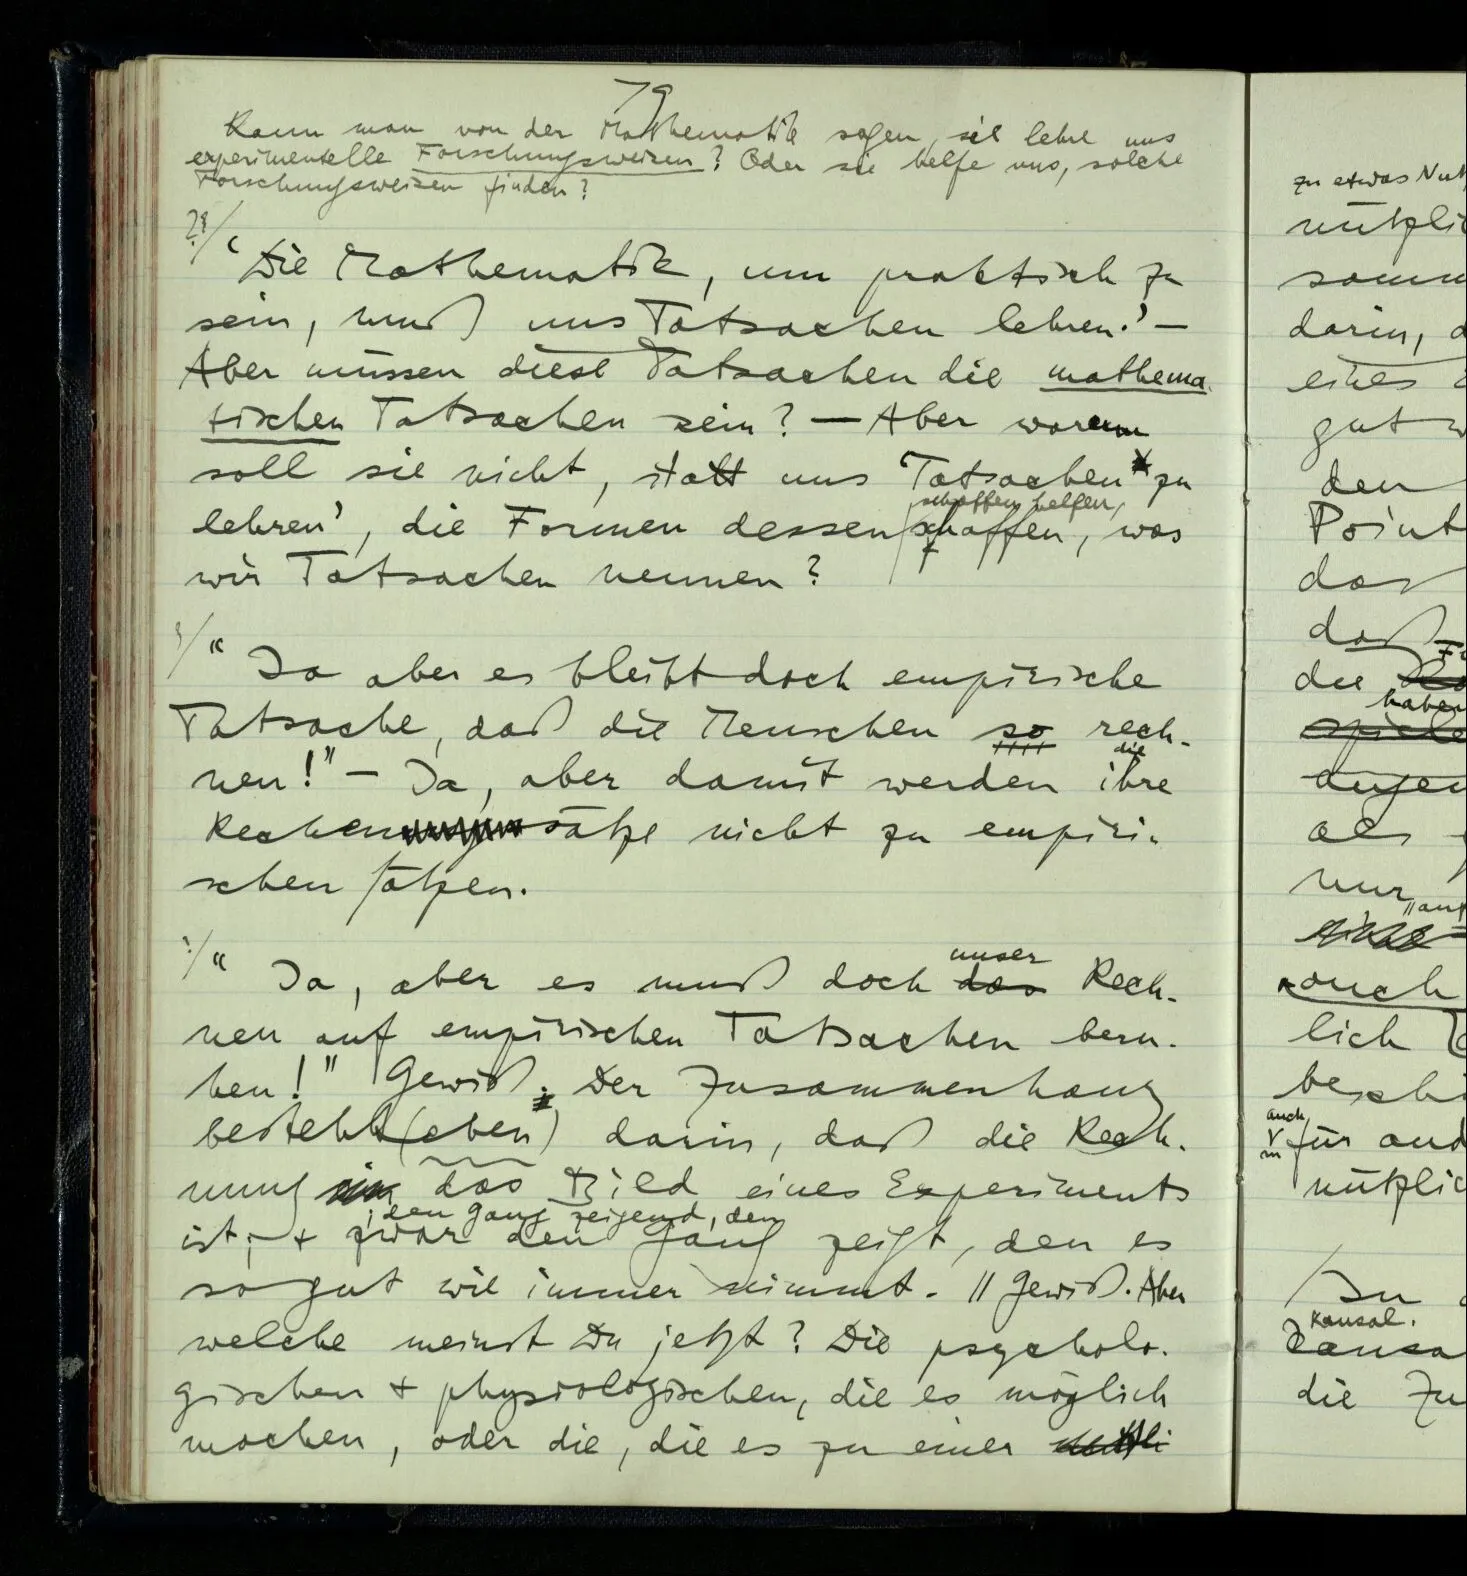 79
Kann man von der Mathematik sagen, sie lehre uns
experimentelle Forschungsweisen? Oder sie helfe uns, solche
Forschungsweisen finden?
?!/ ‘Die Mathematik, um praktisch zu
sein, muß uns Tatsachen lehren.’ —
Aber müssen diese Tatsachen die mathema-
tischen Tatsachen sein? — Aber warum
soll sie nicht, statt uns ‘Tatsachen zu
schaffen helfen,
lehren’, die Formen dessen schaffen, was
wir Tatsachen nennen?
/ “Ja aber es bleibt doch empirische
Tatsache, daß die Menschen so rech-
die
nen!” — Ja, aber damit werden ihre
Rechensätze nicht zu empiri-
schen Sätzen.
/ “Ja, aber es muß doch das Rech-
unser
nen auf empirischen Tatsachen beru-
hen!” Gewiß. Der Zusammenhang
besteht (eben) darin, daß die Rech-
nung das Bild eines Experiments
, den Gang zeigend, den
ist, + zwar den Gang zeigt, den es
so gut wie immer nimmt. // Gewiß. Aber
welche meinst Du jetzt? Die psycholo-
gischen + physiologischen, die es möglich
machen, oder die, die es zu einer
zu etwas
darin,
eines
gut
den
Point
die
haben
als
nur
auch
lich
auch
für
In
kausal.
die Zu